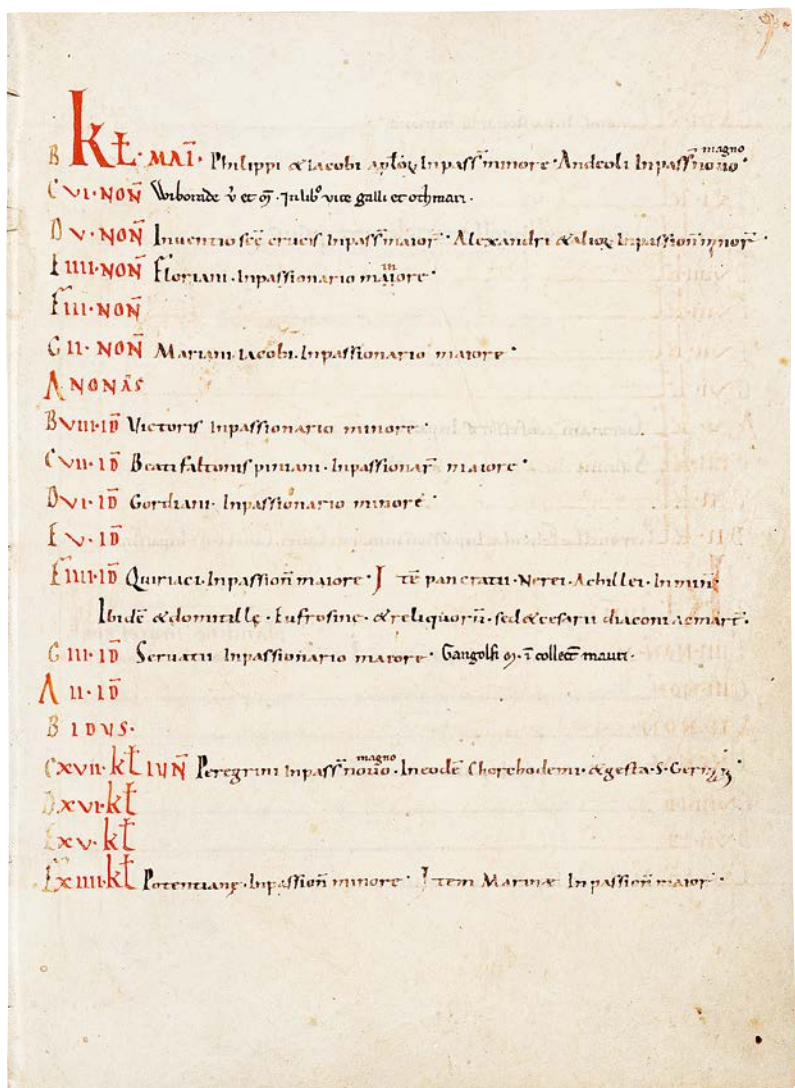 B kł · MAI · Philippi & Iacobi aplōꝝ Inpass̄ minore · Andeoli Inpass̄ nouo magno ·
C VI · NOÑ Wiborade v̄ et m̄ · In lib̊ vite galli et othmari ·
D V · NOÑ Inuentio scē crucis Inpass̄ maior̄ · Alexandri & alioꝝ Inpassioñ minor̄ ·
E IIII · NOÑ Floriani · Inpassionario maiore ·
F III · NOÑ
G II · NOÑ Mariani Iacobi · Inpassionario maiore ·
A NONAS
B VIII · ID̄ Victoris Inpassionario minore ·
C VII · ID̄ Beati faltonis piniani · Inpassionar̄ maiore ·
D VI · ID̄ Gordiani · Inpassionario minore ·
E V · ID̄
F IIII · ID̄ Quiriaci · Inpassioñ maiore · I tē pancratii · Nerei · Achillei · In min̄
Ibidē & domitillę · Eufrosine · & reliquorū · sed & cesarii diaconi ac mart̄ ·
G III · ID̄ Seruatii Inpassionario maiore · Gangolfi m̄ · ī collect̄ mauri ·
A II · ID̄
B IDUS ·
C XVII · kł IUÑ Peregrini Inpass̄ nouo magno · Ineodē Chorebodemi · & gesta · S · Germ̄
D XVI · kł
E XV · kł
F XIIII · kł Potentianę · Inpassioñ minore · I tem Marinæ Inpassioñ maior̄ ·